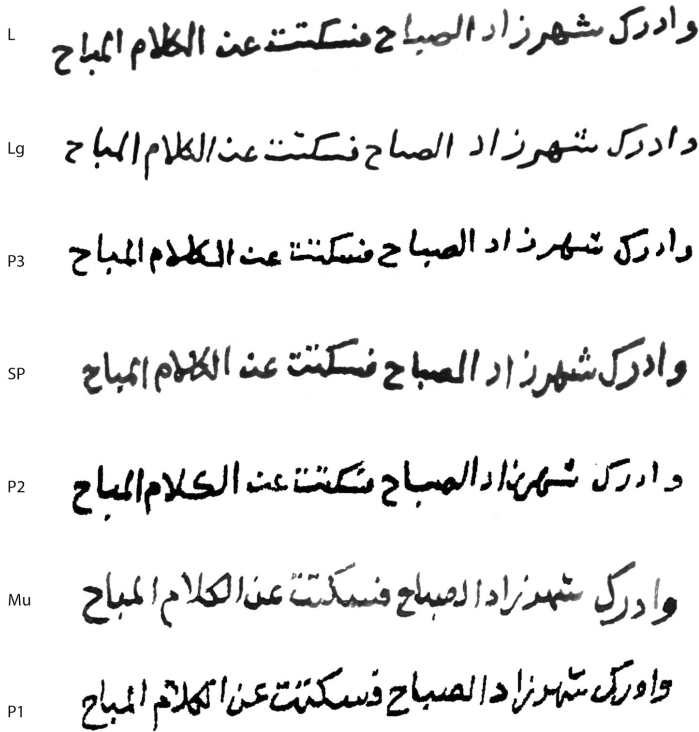 L وادرك شهرزاد الصباح فسكتت عن الكلام المباح
Lg وادرك شهرزاد الصباح فسكتت عن الكلام المباح
P3 وادرك شهرزاد الصباح فسكتت عن الكلام المباح
SP وادرك شهرزاد الصباح فسكتت عن الكلام المباح
P2 وادرك شهرزاد الصباح فسكتت عن الكلام المباح
Mu وادرك شهرزاد الصباح فسكتت عن الكلام المباح
P1 وادرك شهرزاد الصباح فسكتت عن الكلام المباح